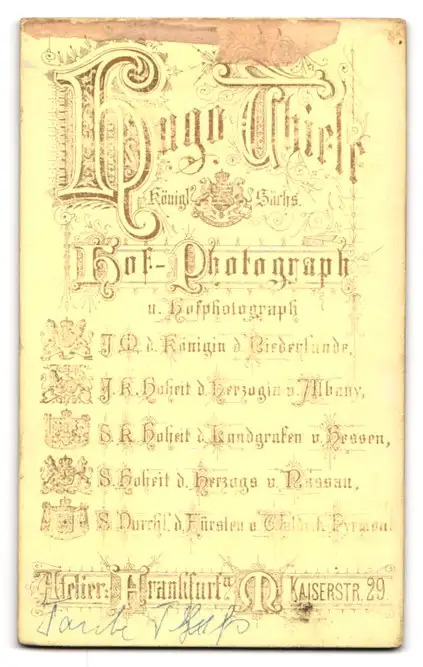 Hugo Thiele
Königl. Sächs.
Hof-Photograph
u. Hofphotograph
J. M. d. Königin d. Niederlande,
J. K. Hoheit d. Herzogin v. Albany,
S. K. Hoheit d. Landgrafen v. Hessen,
S. Hoheit d. Herzogs v. Nassau,
S. Durchl. d. Fürsten v. Waldeck Pyrmont.
Atelier: Frankfurt a/M. KAISERSTR. 29.
Tante